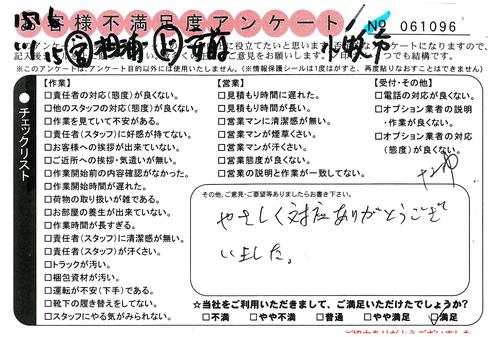 お客様不満足度アンケート
№ 061096
※このアンケートは、アンケート目的以外には使用いたしません。(※情報保護シールは1度はがすと、再度貼りなおすことはできません)
チェックリスト
【作業】
□責任者の対応(態度)が良くない。
□他のスタッフの対応(態度)が良くない。
□作業を見ていて不安がある。
□責任者(スタッフ)に好感が持てない。
□お客様への挨拶が出来ていない。
□ご近所への挨拶・気遣いが無い。
□作業開始前の内容確認がなかった。
□作業開始時間が遅れた。
□荷物の取り扱いが雑である。
□お部屋の養生が出来ていない。
□作業時間が長すぎる。
□責任者(スタッフ)に清潔感が無い。
□責任者(スタッフ)が汗くさい。
□トラックが汚い。
□梱包資材が汚い。
□運転が不安(下手)である。
□靴下の履き替えをしてない。
□スタッフにやる気がみられない。
【営業】
□見積もり時間に遅れた。
□見積もり時間が長い。
□営業マンに清潔感が無い。
□営業マンが煙草くさい。
□営業マンが汗くさい。
□営業態度が良くない。
□営業の説明と作業が一致してない。
【受付・その他】
□電話の対応が良くない。
□オプション業者の説明
・作業が良くない。
□オプション業者の対応
(態度)が良くない。
その他、ご意見・ご要望等ありましたらお書き下さい。
やさしく対応ありがとうござ
いました。
☆当社をご利用いただきまして、ご満足いただけたでしょうか?
□不満 □やや不満 □普通 □やや満足 ☑満足
ご協力ありがとうございました